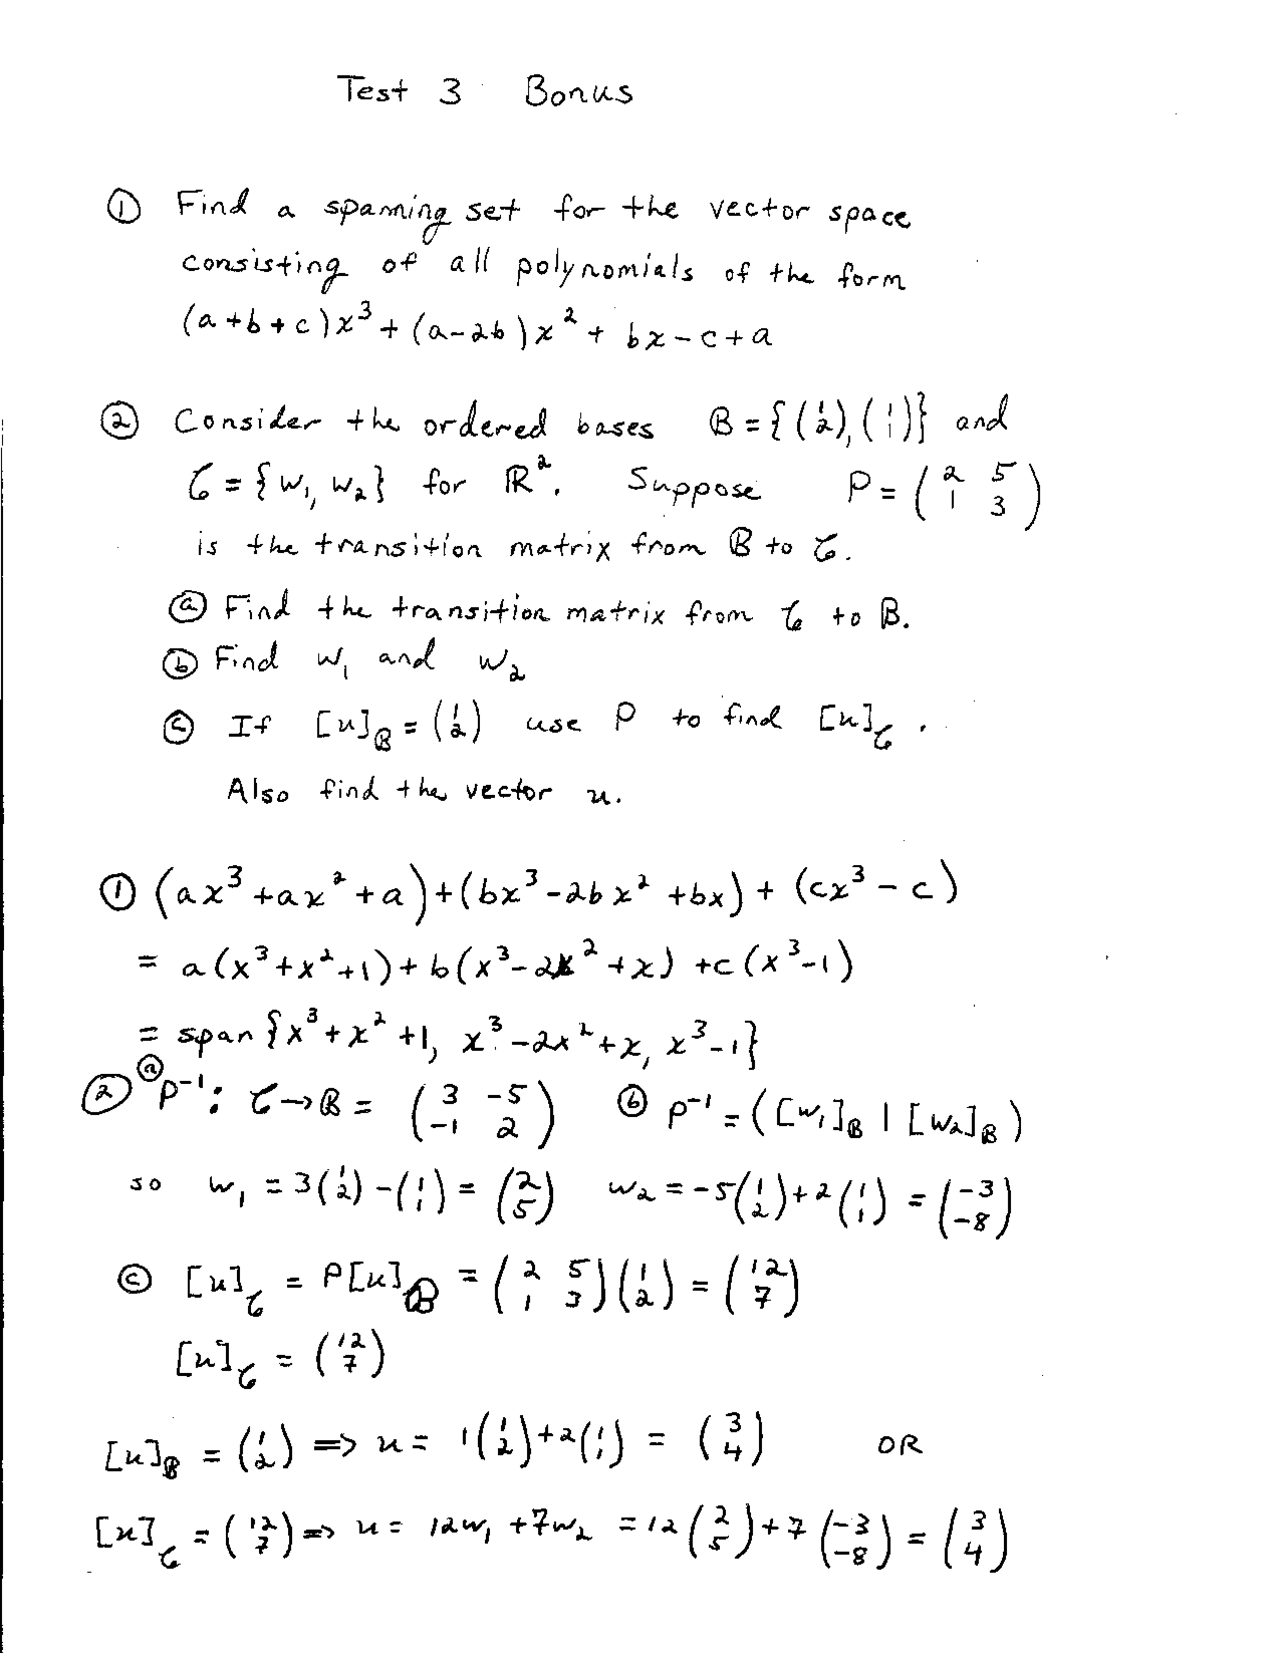 Test 3 Bonus
① Find a spanning set for the vector space
consisting of all polynomials of the form
(a+b+c)x³ + (a-2b)x² + bx - c + a
② Consider the ordered bases B = {(1 2), (1 1)} and
C = {w₁, w₂} for ℝ². Suppose P = (2 5 / 1 3)
is the transition matrix from B to C.
ⓐ Find the transition matrix from C to B.
ⓑ Find w₁ and w₂
ⓒ If [u]_B = (1 2) use P to find [u]_C.
Also find the vector u.
① (ax³ + ax² + a) + (bx³ - 2bx² + bx) + (cx³ - c)
= a(x³+x²+1) + b(x³-2x²+x) + c(x³-1)
= span {x³+x²+1, x³-2x²+x, x³-1}
② ⓐ P⁻¹: C→B = (3 -5 / -1 2) ⓑ P⁻¹ = ([w₁]_B | [w₂]_B)
so w₁ = 3(1 2) - (1 1) = (2 5) w₂ = -5(1 2) + 2(1 1) = (-3 -8)
ⓒ [u]_C = P[u]_B = (2 5 / 1 3)(1 2) = (12 7)
[u]_C = (12 7)
[u]_B = (1 2) ⟹ u = 1(1 2) + 2(1 1) = (3 4) OR
[u]_C = (12 7) ⟹ u = 12w₁ + 7w₂ = 12(2 5) + 7(-3 -8) = (3 4)